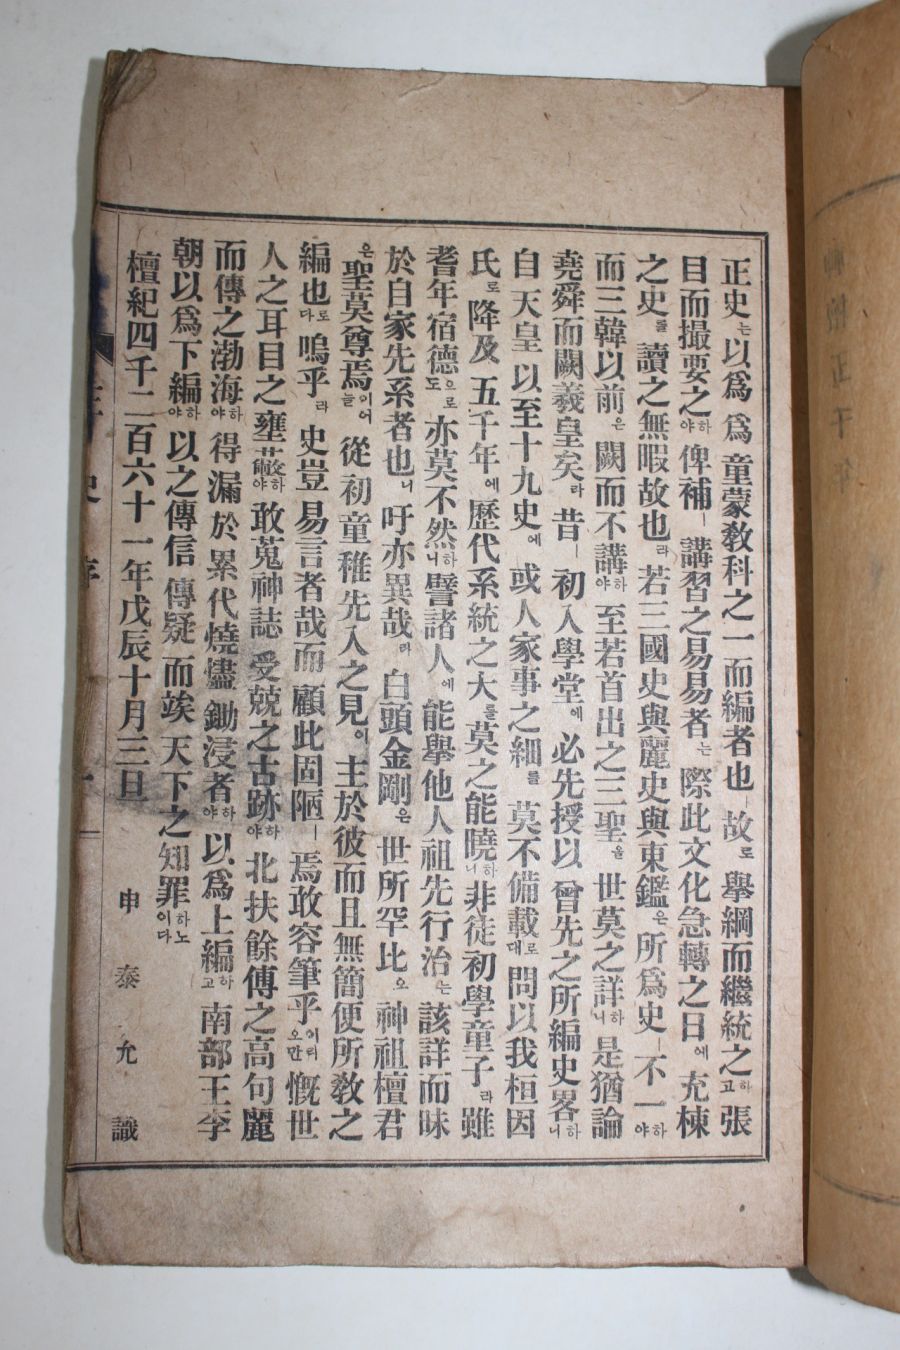 正史는以爲爲童蒙敎科之一而編者也ㅣ故로擧綱而繼統之하고張
目而撮要之하야俾補ㅣ講習之易易者는際此文化急轉之日에充棟
之史를讀之無暇故也라若三國史與麗史與東鑑은所爲史ㅣ不一하야
而三韓以前은闕而不講하야至若首出之三聖을世莫之詳하니是猶論
堯舜而闕羲皇矣라昔ㅣ初入學堂에必先授以曾先之所編史畧하니
自天皇以至十九史에或人家事之細를莫不備載로대問以我桓因
氏로降及五千年에歷代系統之大를莫之能曉하니非徒初學童子라雖
耆年宿德으로도亦莫不然하니譬諸人에能擧他人祖先行治는該詳而昧
於自家先系者也니吁亦異哉라白頭金剛은世所罕比오神祖檀君
은聖莫尊焉이어늘從初童稚先入之見이主於彼而且無簡便所敎之
編也로다嗚乎라史豈易言者哉而顧此固陋ㅣ焉敢容筆乎이리오만慨世
人之耳目之壅蔽하야敢蒐神誌受兢之古跡하야北扶餘傳之高句麗
而傳之渤海하야得漏於累代燒燼鋤浸者하야以爲上編하고南部王李
朝以爲下編하야以之傳信傳疑而竢天下之知罪하노이다
檀紀四千二百六十一年戊辰十月三日 申泰允識
史序